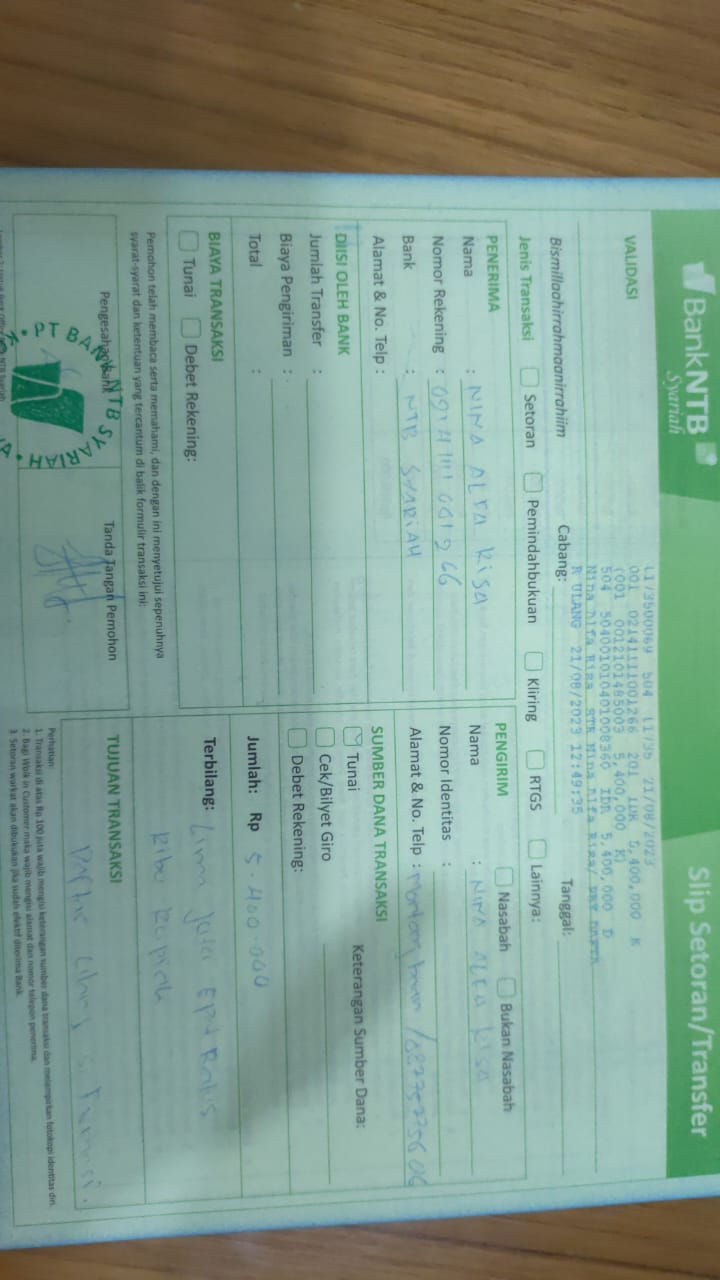 BankNTB
Syariah
Slip Setoran/Transfer
VALIDASI
L1/3500069 504 L1/35 21/08/2023
001 02141111001266 201 IDR 5,400,000 K
(001 0012101485003 5,400,000 K)
504 504001010401008360 IDR 5,400,000 D
Nina Alfa Risa STR Nina Alfa Risa/
R ULANG 21/08/2023 12:49:35
Bismillaahirrahmaanirrahiim
Cabang:
Tanggal:
Jenis Transaksi
Setoran
Pemindahbukuan
Kliring
RTGS
Lainnya:
PENERIMA
Nama : NINA ALFA RISA
Nomor Rekening :
Bank : NTB SYARIAH
Alamat & No. Telp :
PENGIRIM
Nasabah
Bukan Nasabah
Nama : NINA ALFA RISA
Nomor Identitas :
Alamat & No. Telp :
DIISI OLEH BANK
Jumlah Transfer :
Biaya Pengiriman :
Total :
SUMBER DANA TRANSAKSI
Tunai
Keterangan Sumber Dana:
Cek/Bilyet Giro
Debet Rekening:
BIAYA TRANSAKSI
Tunai
Debet Rekening:
Jumlah: Rp 5.400.000
Terbilang: Lima Juta
Ribu Rupiah
Pemohon telah membaca serta memahami, dan dengan ini menyetujui sepenuhnya
syarat-syarat dan ketentuan yang tercantum di balik formulir transaksi ini:
Pengesahan Bank
PT BANK NTB SYARIAH
Tanda Tangan Pemohon
TUJUAN TRANSAKSI
Daftar Ulang
Perhatian:
1. Transaksi di atas Rp 100 juta wajib mengisi keterangan sumber dana transaksi dan melampirkan fotokopi identitas diri.
2. Bagi Walk in Customer maka wajib mengisi alamat dan nomor telepon penerima.
3. Setoran warkat akan dibukukan jika sudah efektif diterima Bank.